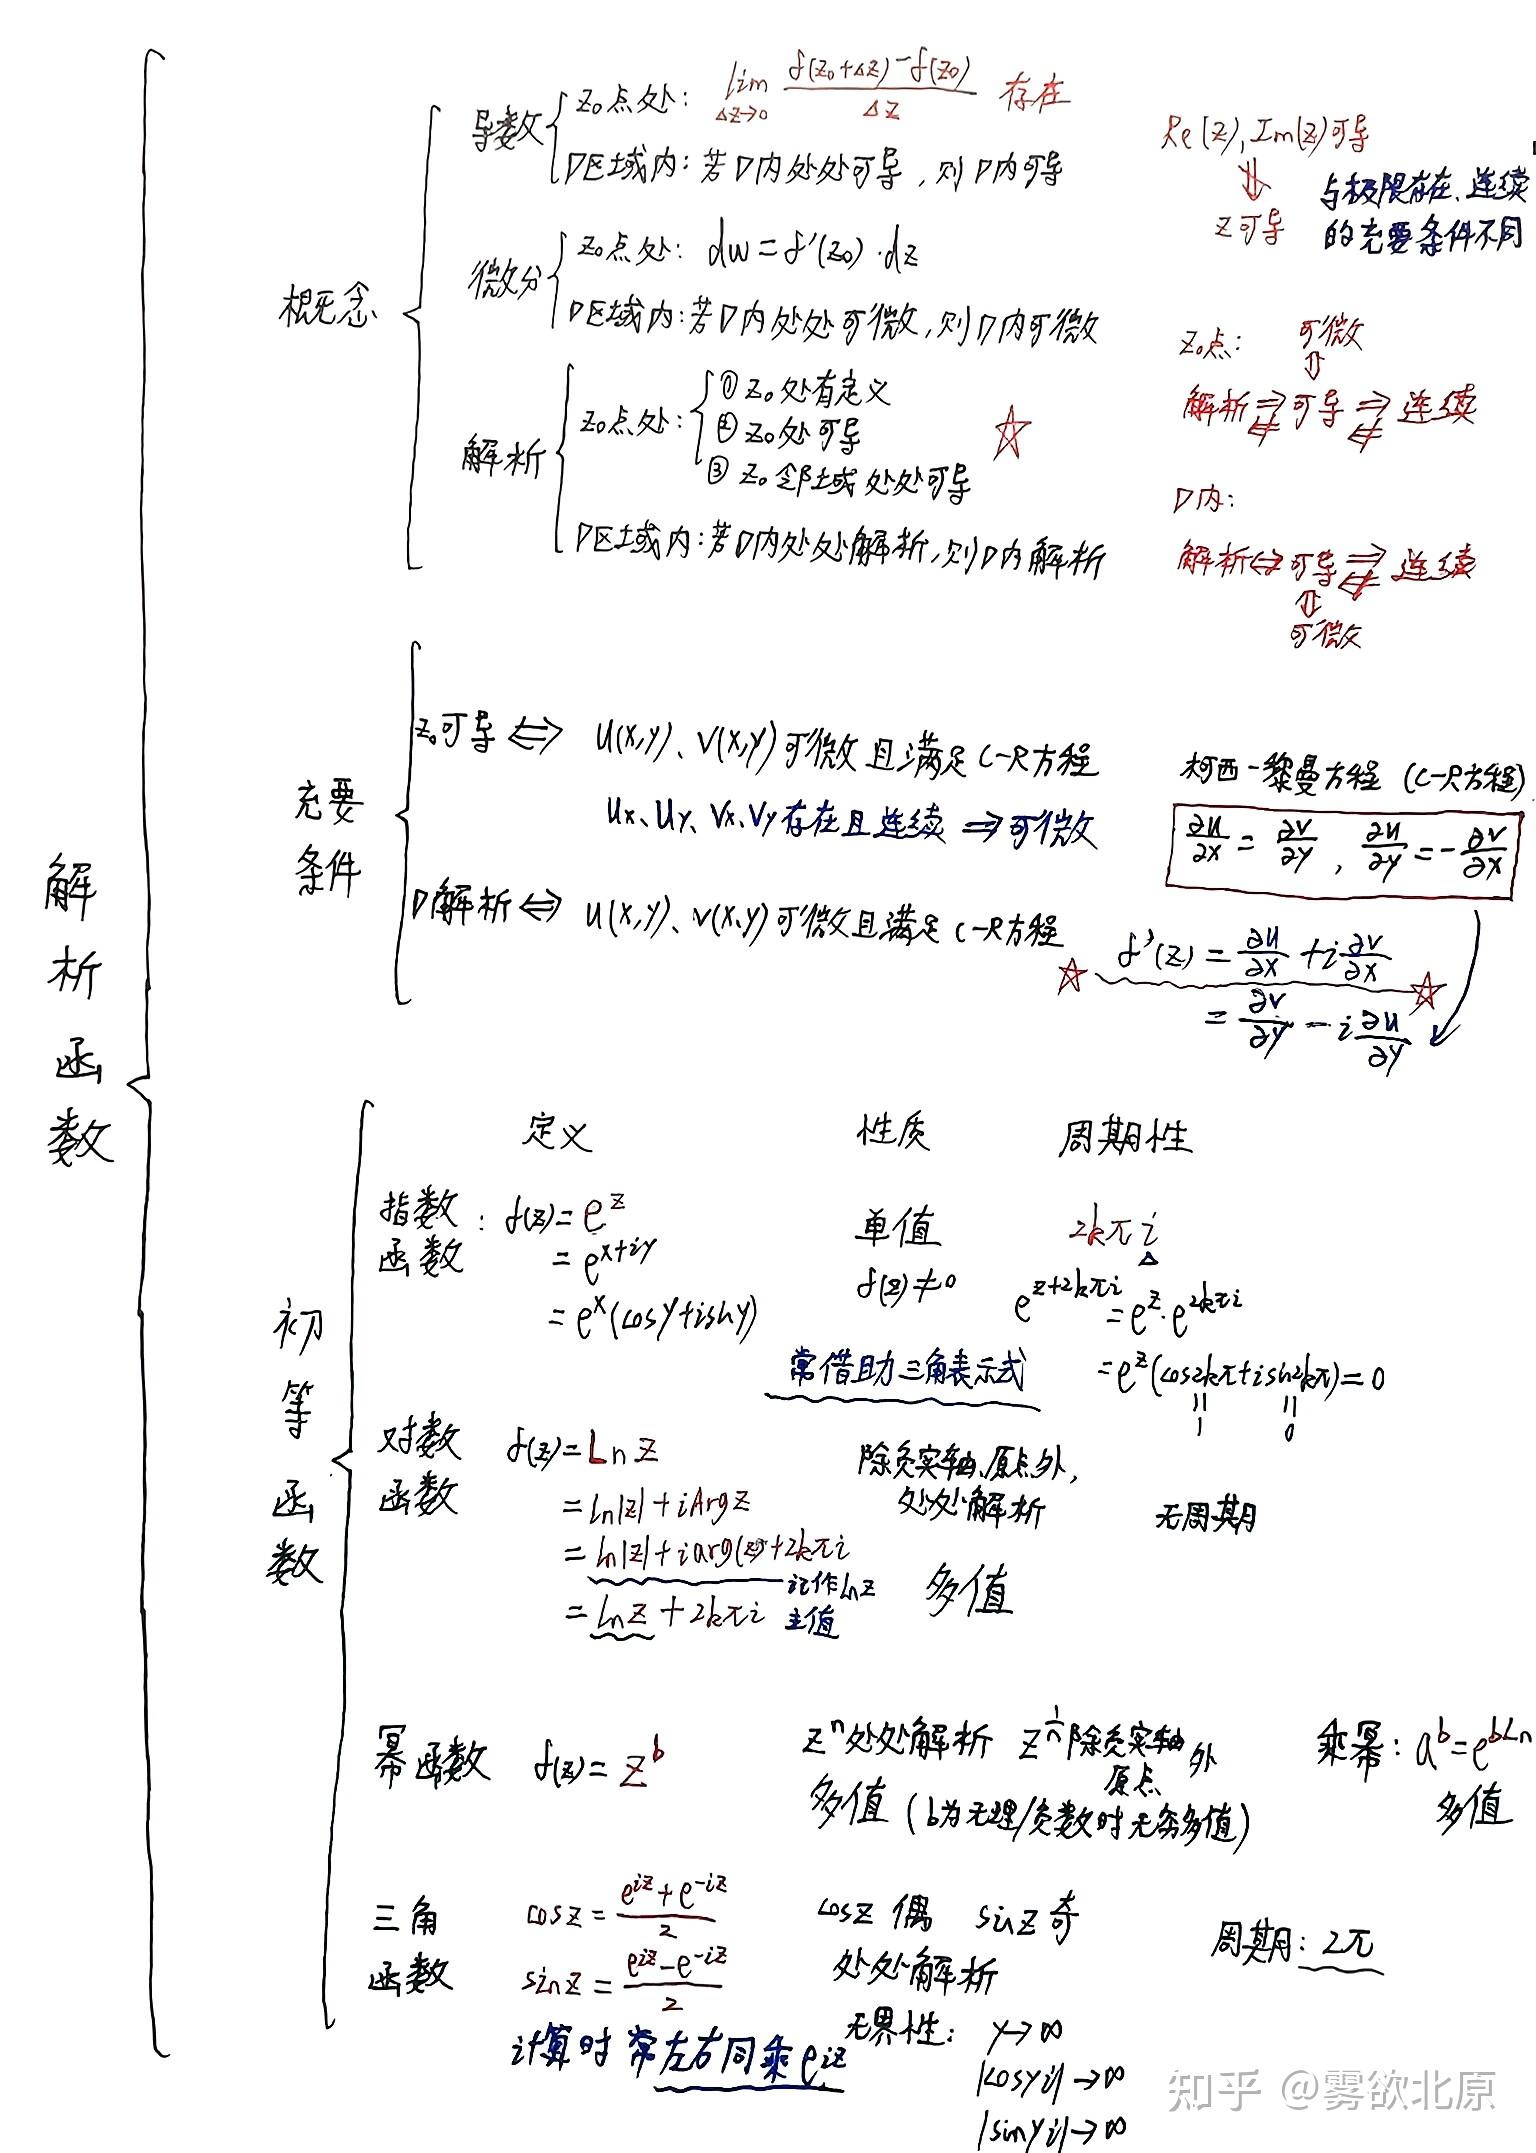 解析函数
概念
导数
z₀点处: lim Δz→0 f(z₀+Δz)-f(z₀) / Δz 存在
D区域内: 若D内处处可导, 则D内可导
Re(z), Im(z)可导
⇓
z可导
与极限存在、连续
的充要条件不同
微分
z₀点处: dw = f'(z₀)·dz
D区域内: 若D内处处可微, 则D内可微
解析
z₀点处:
① z₀处有定义
② z₀处可导
③ z₀邻域处处可导
☆
D区域内: 若D内处处解析, 则D内解析
z₀点: 可微
⇕
解析 ⇒ ⇍ 可导 ⇒ ⇍ 连续
D内:
解析 ⇔ 可导 ⇒ ⇍ 连续
⇕
可微
充要
条件
z₀可导 ⇔ u(x,y)、v(x,y)可微且满足C-R方程
ux、uy、vx、vy存在且连续 ⇒ 可微
D解析 ⇔ u(x,y)、v(x,y)可微且满足C-R方程
柯西-黎曼方程 (C-R方程)
∂u/∂x = ∂v/∂y , ∂u/∂y = -∂v/∂x
☆ f'(z) = ∂u/∂x + i∂v/∂x ☆
= ∂v/∂y - i∂u/∂y
初等函数
定义 性质 周期性
指数
函数
: f(z) = e^z
= e^(x+iy)
= e^x(cosy+isiny)
单值
f(z)≠0
2kπi
Δ
e^(z+2kπi) = e^z·e^(2kπi)
= e^z(cos2kπ+isin2kπ) = 0
‖ ‖
1 0
常借助三角表示式
对数
函数
f(z) = Ln z
= ln|z| + iArgz
= ln|z| + iarg(z) + 2kπi
记作lnz
= lnz + 2kπi 主值
除负实轴、原点外,
处处解析
多值
无周期
幂函数 f(z) = z^b
z^n处处解析 z^(1/n)除负实轴外
原点
多值 (b为无理/负数时无穷多值)
乘幂: a^b = e^(bLn
多值
三角
函数
cosz = e^(iz)+e^(-iz) / 2
sinz = e^(iz)-e^(-iz) / 2
cosz 偶 sinz 奇
处处解析
周期: 2π
无界性: y→∞
|cosyi|→∞
|sinyi|→∞
计算时常左右同乘e^(iz)
知乎 @雾欲北原